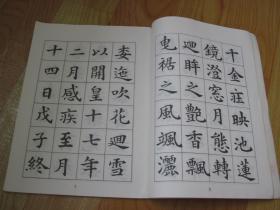 千金莊映池蓮
鏡澄窓月態轉
迴眸之艷香飄
曳裾之風颯灑
委迤吹花迴雪
以開皇十七年
二月感疾至月
十四日戊子終